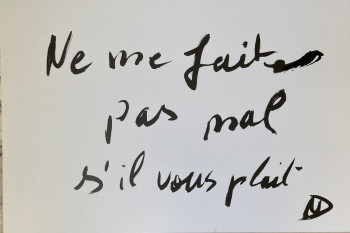 Ne me fait
pas mal
s'il vous plait